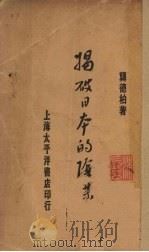 龔德柏著
揭破日本的陰謀
上海太平洋書店印行